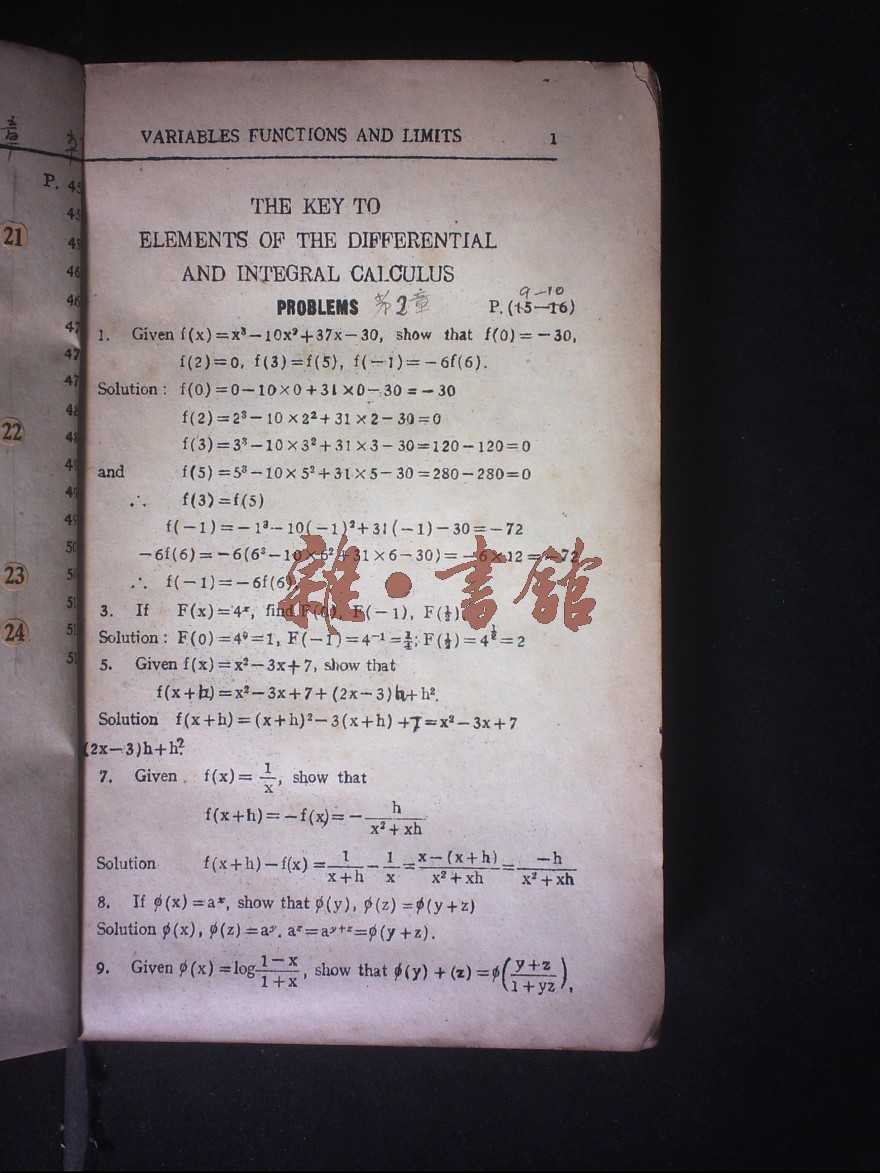 VARIABLES FUNCTIONS AND LIMITS 1
THE KEY TO
ELEMENTS OF THE DIFFERENTIAL
AND INTEGRAL CALCULUS
PROBLEMS 第2章 P. (15—16) 9-10
1. Given f(x)=x³−10x²+37x−30, show that f(0)=−30,
f(2)=0, f(3)=f(5), f(−1)=−6f(6).
Solution: f(0)=0−10×0+31×0−30=−30
f(2)=2³−10×2²+31×2−30=0
f(3)=3³−10×3²+31×3−30=120−120=0
and f(5)=5³−10×5²+31×5−30=280−280=0
∴ f(3)=f(5)
f(−1)=−1³−10(−1)²+31(−1)−30=−72
−6f(6)=−6(6³−10×6²+31×6−30)=−6×12=−72
∴ f(−1)=−6f(6)
雜·書館
3. If F(x)=4ˣ, find F(0), F(−1), F(½)
Solution: F(0)=4⁰=1, F(−1)=4⁻¹=¼; F(½)=4^½=2
5. Given f(x)=x²−3x+7, show that
f(x+h)=x²−3x+7+(2x−3)h+h².
Solution f(x+h)=(x+h)²−3(x+h)+7=x²−3x+7
(2x−3)h+h².
7. Given f(x)=1/x, show that
f(x+h)=−f(x)=−h/(x²+xh)
Solution f(x+h)−f(x)=1/(x+h)−1/x=(x−(x+h))/(x²+xh)=−h/(x²+xh)
8. If ϕ(x)=aˣ, show that ϕ(y), ϕ(z)=ϕ(y+z)
Solution ϕ(x), ϕ(z)=aʸ. aᶻ=aʸ⁺ᶻ=ϕ(y+z).
9. Given ϕ(x)=log (1−x)/(1+x), show that ϕ(y)+(z)=ϕ((y+z)/(1+yz)),
P. 45
45
45
46
46
47
47
47
48
48
49
49
49
50
50
51
51
51
21
22
23
24